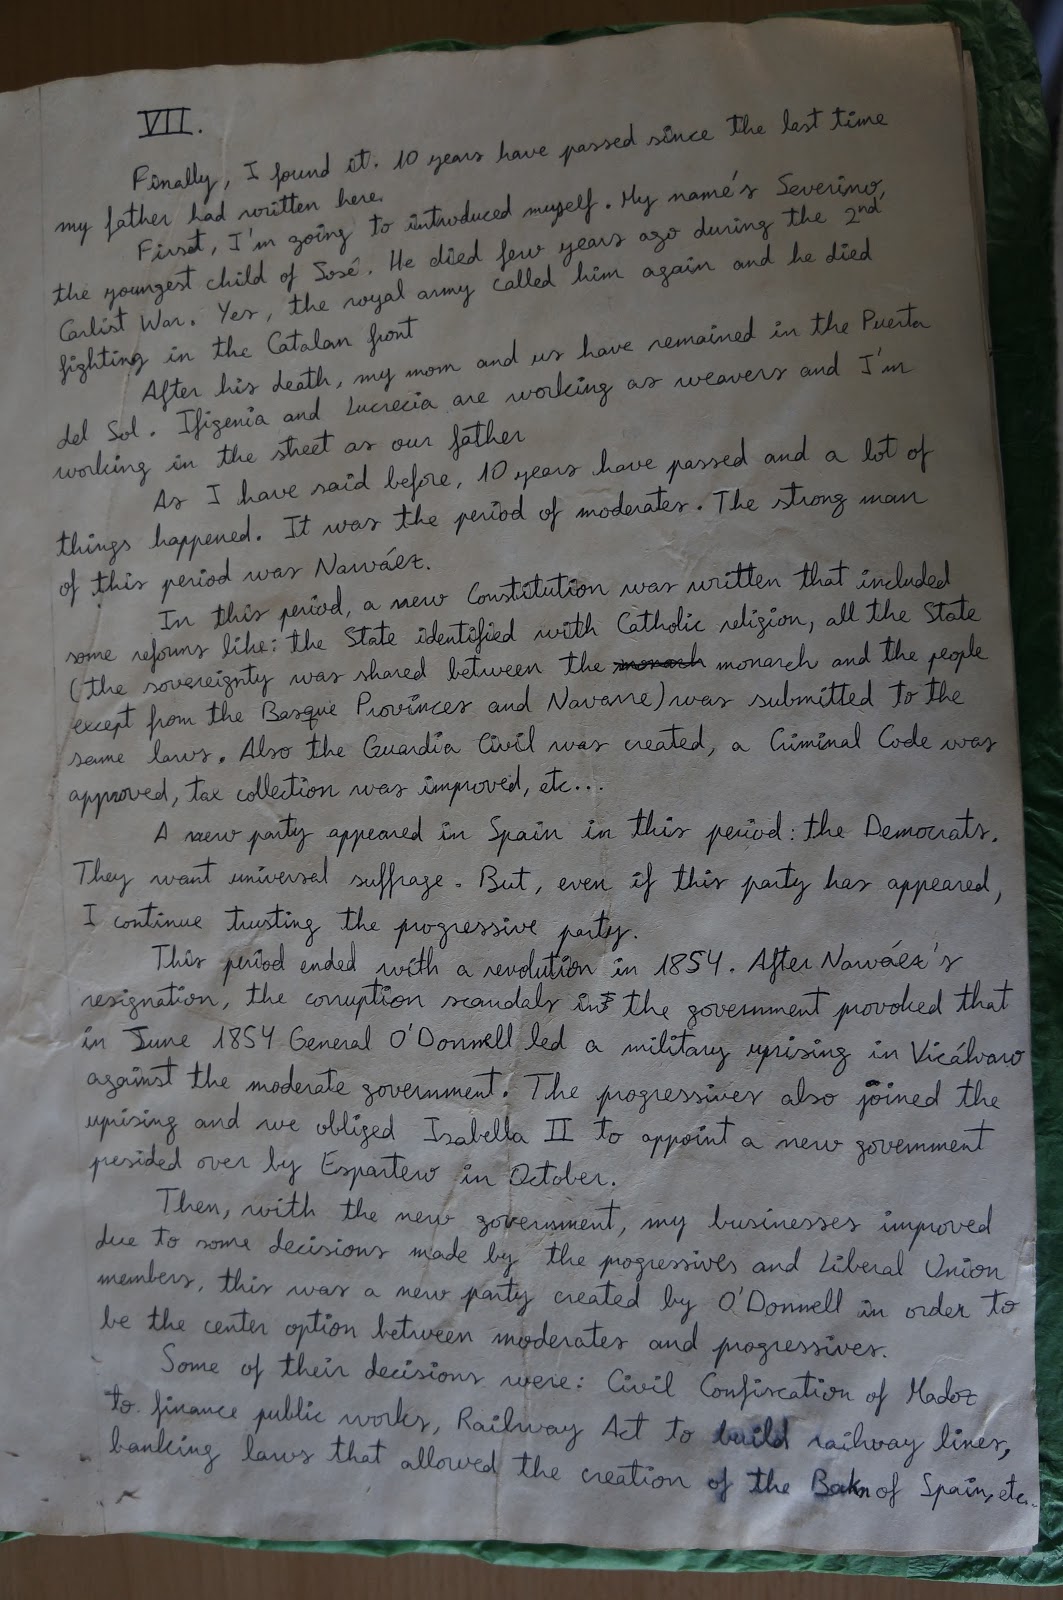 VII.
Finally, I found it. 10 years have passed since the last time
my father had written here.
First, I'm going to introduced myself. My name's Severino,
the youngest child of José. He died few years ago during the 2nd
Carlist War. Yes, the royal army called him again and he died
fighting in the Catalan front
After his death, my mom and us have remained in the Puerta
del Sol. Ifigenia and Lucrecia are working as weavers and I'm
working in the street as our father
As I have said before, 10 years have passed and a lot of
things happened. It was the period of moderates. The strong man
of this period was Narváez.
In this period, a new Constitution was written that included
some reforms like: the State identified with Catholic religion, all the State
(the sovereignty was shared between the monarch and the people
except from the Basque Provinces and Navarre) was submitted to the
same laws. Also the Guardia Civil was created, a Criminal Code was
approved, tax collection was improved, etc...
A new party appeared in Spain in this period: the Democrats.
They want universal suffrage. But, even if this party has appeared,
I continue trusting the progressive party.
This period ended with a revolution in 1854. After Narváez's
resignation, the corruption scandals in the government provoked that
in June 1854 General O'Donnell led a military uprising in Vicálvaro
against the moderate government. The progressives also joined the
uprising and we obliged Isabella II to appoint a new government
presided over by Espartero in October.
Then, with the new government, my businesses improved
due to some decisions made by the progressives and Liberal Union
members, this was a new party created by O'Donnell in order to
be the center option between moderates and progressives.
Some of their decisions were: Civil Confiscation of Madoz
to finance public works, Railway Act to build railway lines,
banking laws that allowed the creation of the Bakn of Spain, etc..